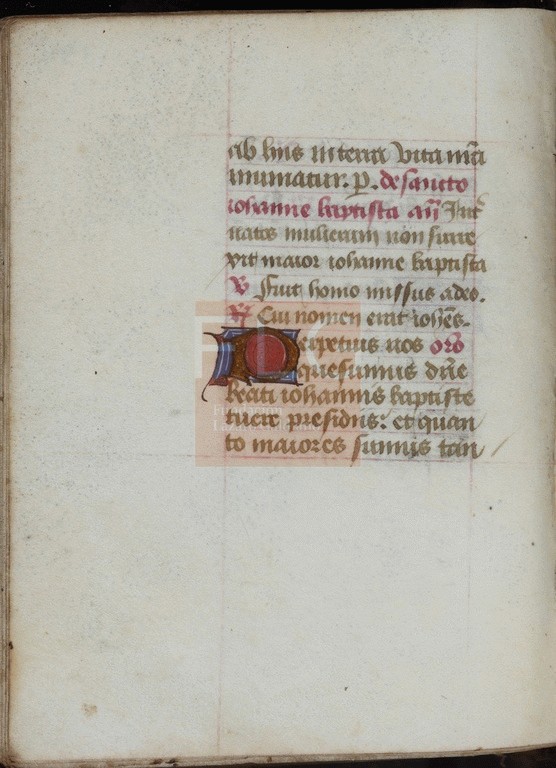 ab hijs in terra vita nr̄a
muniatur. p. de sancto
iohanne baptista an̄ Int̄
natos mulierum non surre
xit maior iohanne baptista
V Fuit homo missus a deo.
R Cui nomen erat ioh̄es.
Perpetuis nos or̄o
quesumus dn̄e
beati iohannis baptiste
tuere presidijs: et quan
to maiores sumus tan